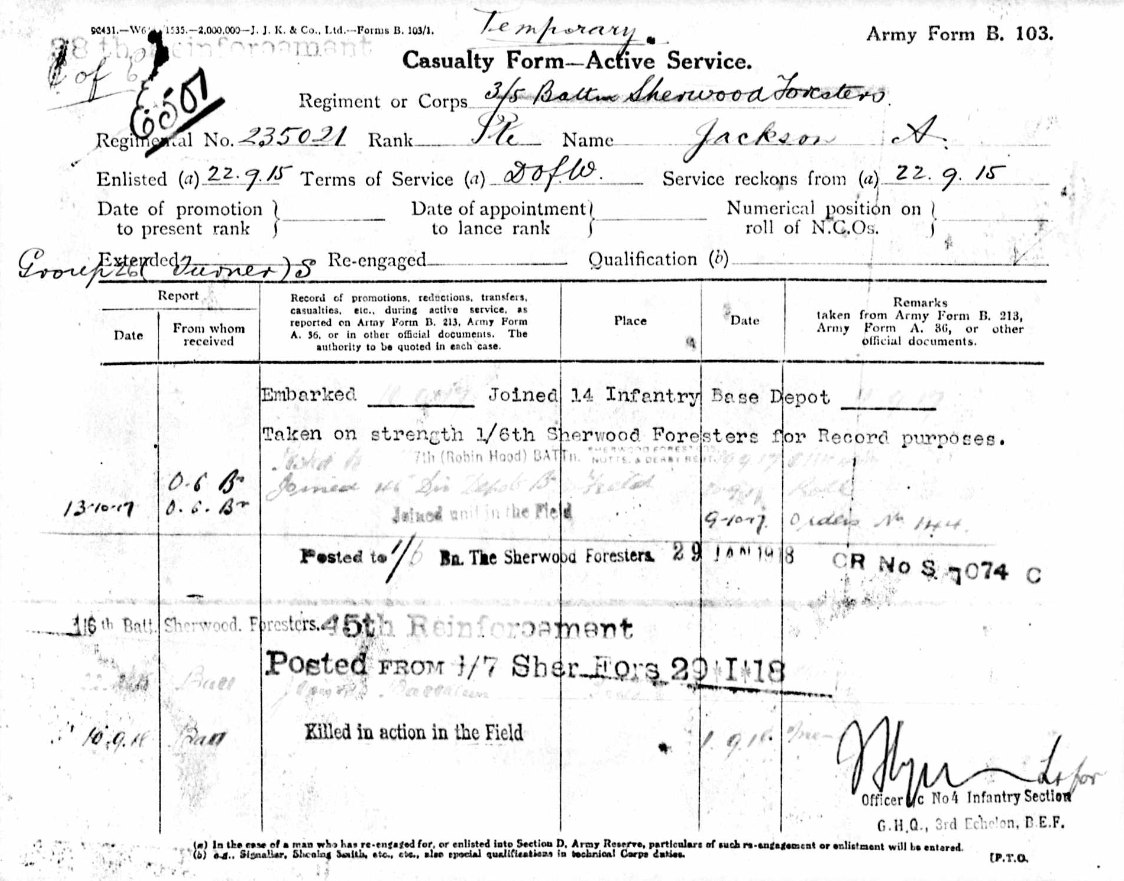 90431.—W6 1535.—2,000,000—J. J. K. & Co., Ltd.—Forms B. 103/1.
Temporary.
Army Form B. 103.
28th Reinforcament
of
E501
Casualty Form—Active Service.
Regiment or Corps 3/5 Battn Sherwood Foresters.
Regimental No. 235021 Rank Pte Name Jackson A.
Enlisted (a) 22.9.15 Terms of Service (a) D of W. Service reckons from (a) 22.9.15
Date of promotion to present rank } Date of appointment to lance rank } Numerical position on roll of N.C.Os. }
Extended Re-engaged Qualification (b)
Group 26 (Turner) S
Report
Date
From whom received
Record of promotions, reductions, transfers, casualties, etc., during active service, as reported on Army Form B. 213, Army Form A. 36, or in other official documents. The authority to be quoted in each case.
Place
Date
Remarks
taken from Army Form B. 213, Army Form A. 36, or other official documents.
Embarked Joined 14 Infantry Base Depot
Taken on strength 1/6th Sherwood Foresters for Record purposes.
7th (Robin Hood) BATTn. SHERWOOD FORESTERS NOTTS. & DERBY REGT.
O.C. Bn Joined 46 Div Depot Bn Field
13-10-17 O.C. Bn Joined unit in the Field 9-10-17 Orders No 144.
Posted to 1/6 Bn. The Sherwood Foresters. 29 JAN 1918 CR No S 7074 C
1/6th Batt. Sherwood Foresters. 45th Reinforcament
Posted FROM 1/7 Sher Fors 29·1·18
Batt Joined Battalion
10.9.18 Batt Killed in action in the Field 1.9.18
Lt for
Officer i/c No 4 Infantry Section
G.H.Q., 3rd Echelon, B.E.F.
(a) In the case of a man who has re-engaged for, or enlisted into Section D, Army Reserve, particulars of such re-engagement or enlistment will be entered.
(b) e.g., Signaller, Shoeing Smith, etc., etc., also special qualifications in technical Corps duties.
[P.T.O.